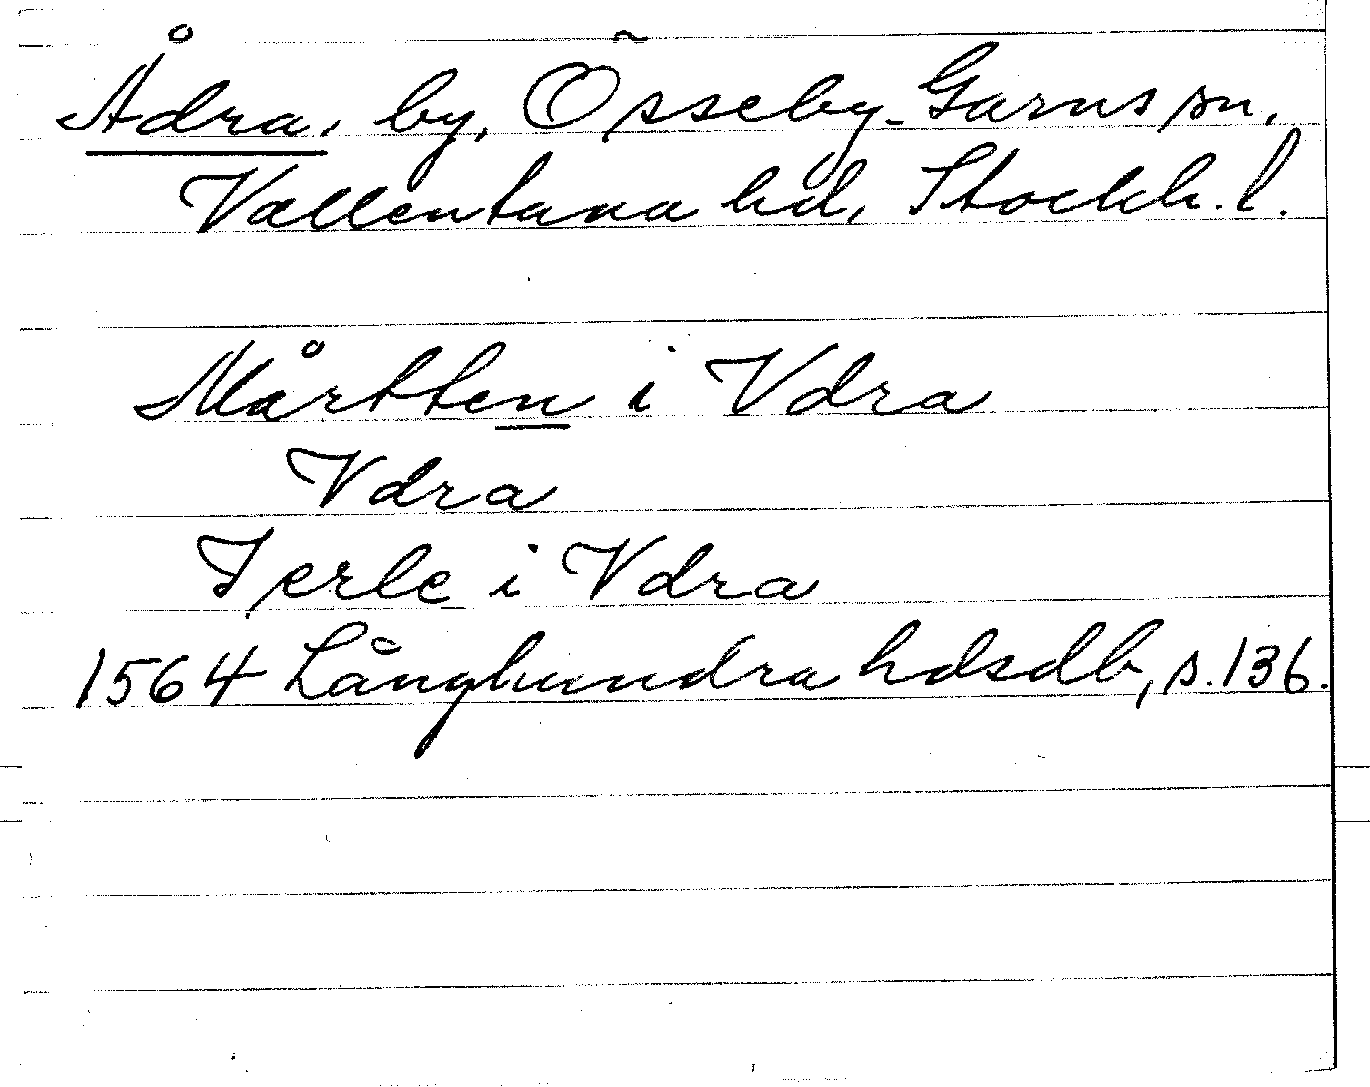 Ådra, by, Össeby-Garns sn,
Vallentuna hd, Stockh. l.
Mårtten i Vdra
Vdra
Jerle i Vdra
1564 Långhundra hdsdb, s. 136.